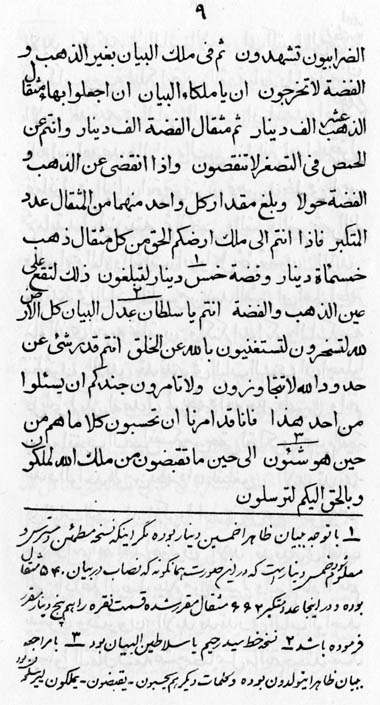 ٩
الضرابیون تشهدون ثم فی ملك البیان بغیر الذهب و
الفضة لا تخرجون ان یا ملکاء البیان ان اجعلوا بهاء مثقال
الذهب عشر الف دینار ثم مثقال الفضة الف دینار وانتم عن
الحمص فی التصغر لا تنقصون واذا انقضی عن الذهب و
الفضة حولا وبلغ مقدار کل واحد منهما من المثقال عدد
المتکبر فاذا انتم الی ملك ارضکم الحق من کل مثقال ذهب
خسمأة دینار وفضة خمس ۱ دینار لتبلغون ذلك لتقع علی
عین الذهب والفضة انتم یا سلطان ۲ عدل البیان کل الارض
لله لتسخرون لتستغنیون بالله عن الخلق انتم قدر شئ عن
حدود الله لا تتجاوزون ولا تأمرون جندکم ان یسئلوا
من احد هذا فانا قد امرنا ان تحسبون کلا ما هم من
حین هو شئون ۳ الی حین ما تقبضون من ملك الله لملکو
وبالحق الیکم لترسلون
۱ با توجه ببیان ظاهرا خمسین دینار بوده مگر اینکه نسخه مطمئن در دسترس و
معلوم شود خمس دینار است که در این صورت همانگونه که نصاب در بیان ۵۴۰ مثقال
بوده و در اینجا عدد متکبر ۶۶۲ مثقال مقرر شده قسمت نقره را هم پنج دینار مقرر
فرموده باشد ۲ نسخه خط سید رحیم یا سلاطین البیان بود ۳ با مراجعه
ببیان ظاهرا یتولدون بوده و کلمات دیگر هم یحسبون - یقبضون - یملکون لیرسلون بود